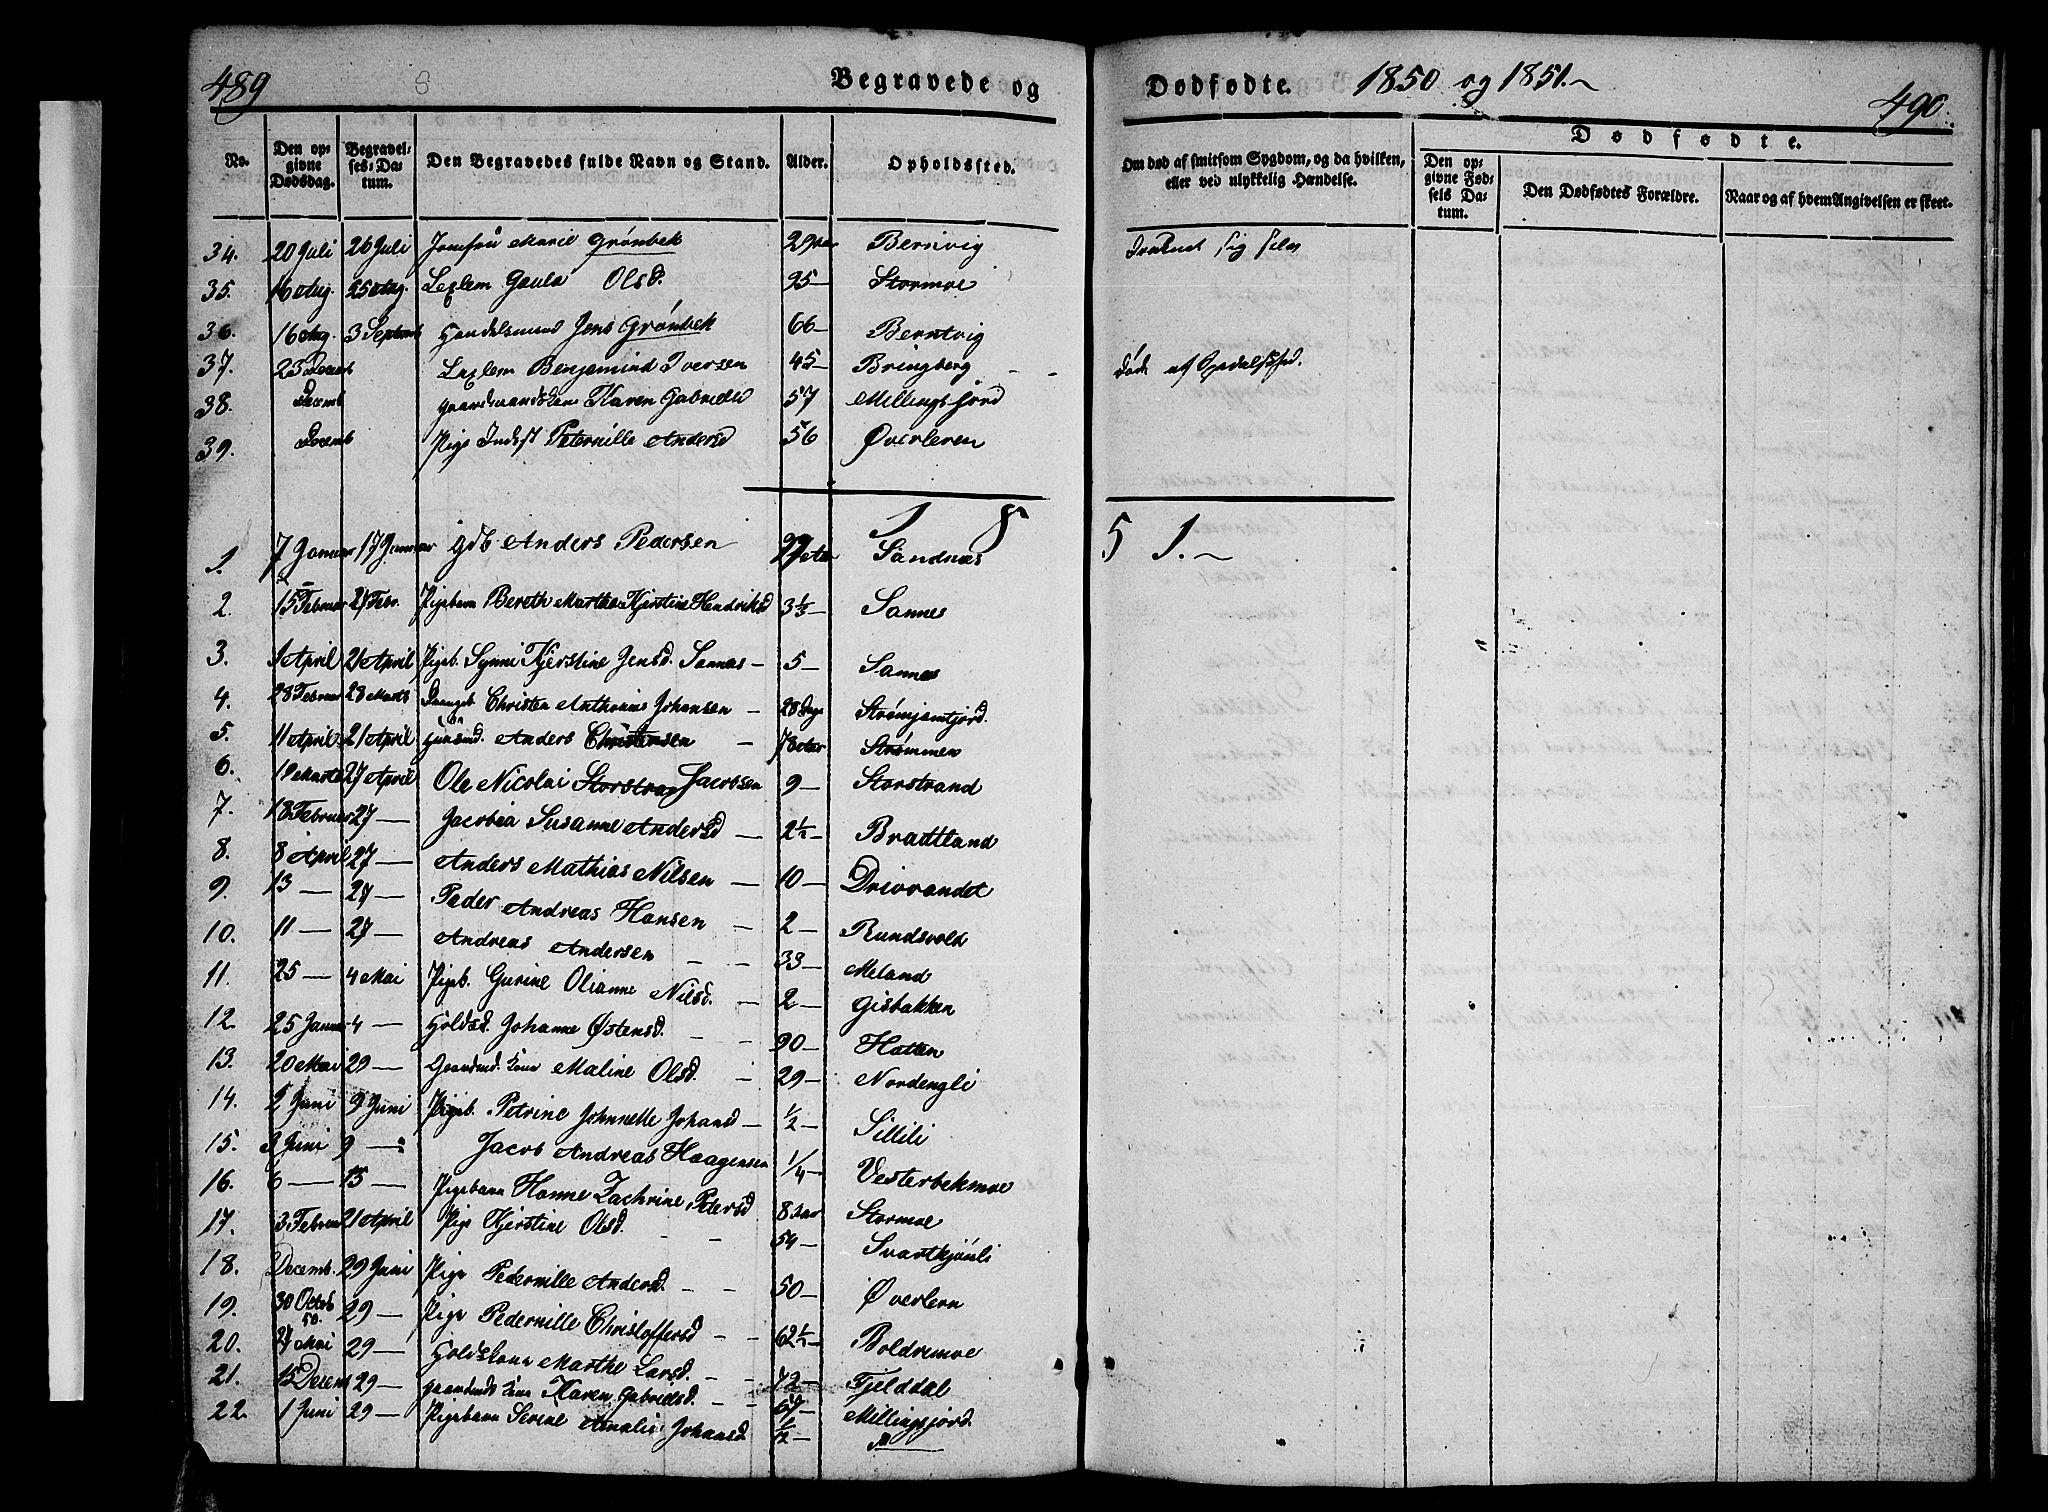 489
Begravede og
Dødfødte. 1850 og 1851.~
490.
No.
Den op-
givne
Dødsdag.
Begravel-
ses-Da-
tum.
Den Begravedes fulde Navn og Stand.
Alder.
Opholdssted.
Om død af smitsom Sygdom, og da hvilken,
eller ved ulykkelig Hændelse.
Dødfødte.
Den op-
givne Fød-
sels Da-
tum.
Den Dødfødtes Forældre.
Naar og af hvem Angivelsen er skeet.
34. 20 Juli 26 Juli Jomfru Marie Grønbek 29 Berntvig
35. 16 Aug. 25 Aug. Olsd. 95— Stormoe
36. 16 Aug. 3 Septemb Handelsmand Jens Grønbek 66— Berntvig
37. 23 Decemb Benjamind Iversen 45— Bringberg Døde af Spedalskhed.
38. Decemb Gaardmandskone Karen Gabrielsd 57 Millingsjord
39. Decemb Pige Indest Peternille Andersd 56 Øverleren
1 8 5 1.~
1. 7 Januar 17 Januar Gdb Anders Pedersen Sandnæs
2. 15 Februar 27 Febr. Pigebarn Bereth Martha Kjerstine Hendriksd 3½— Sannes
3. 1 April 21 April Pigeb. Synni Kjerstine Jensd. Sannes— 5— Sannes
4. 28 Februar 28 Marts Drengeb Christen Anthonius Johansen — 28 Dage Strømjemfjord.
5. 11 April 21 April Huusmd. Anders Christensen — 78 Aar Strømmen
6. 19 Marts 27 April Ole Nicolai Jacobsen 9— Storstrand
7. 18 Februar 27— Jacobia Susanne Andersd — 2½— Bradtland
8. 8 April 27— Anders Mathias Nilsen — 10— Drivrandet
9. 13— 27— Peder Andreas Hansen — 2— Rundsvold
10. 11— 27— Andreas Andersen — — 33— Meland
11. 25— 4 Mai Pigeb. Gurine Olianne Nilsd. — 2— Gisbakken
12. 25 Januar 4— Holdsd. Johanne Østensd. — — 90— Hatten
13. 20 Mai 29— Gaardmd. kone Maline Olsd. — 29— Nordengli
14. 2 Juni 9 Juni Pigeb. Petrine Johnnette Johansd— ½— Sillili
15. 3 Juni 9— Jacob Andreas Haagensen ¼— Vesterbekmoe
16. 6— 15— Pigebarn Hanne Zachrine Petersd 8 Aar Stormoe
17. 3 Februar 21 April Pige Kjerstine Olsd. — — 54— Svartkjønli
18. Decemb. 29 Juni Pige Pedernille Andersd. — — 50— Øverlern
19. 30 Octob 50. 29— Pige Pedernille Christoffersd — — 62½— Boldremoe
20. 27 Mai 29— Marthe Larsd. — — 72— Fjelddal
21. 15 Decem 29— Gaardmds kone Karen Gabrielsd. — — 57— Millingsjord.
22. 1 Juni 29— Pigebarn Serine Amalie Johansd